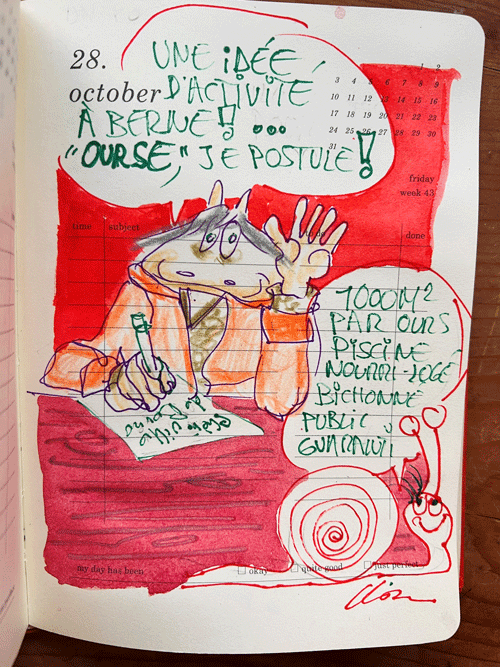 UNE iDÉE
28.
october D'ACTIVITÉ
À BERNE!! ...
"OURSE," JE POSTULE!
1 2
3 4 5 6 7 8 9
10 11 12 13 14 15 16
17 18 19 20 21 22 23
24 25 26 27 28 29 30
31
friday
week 43
time subject done
1000M2
PAR OURS
PISCINE
NOURRI-LOGÉ
BICHONNÉ
PUBLIC
GUARANTI
my day has been okay quite good just perfect